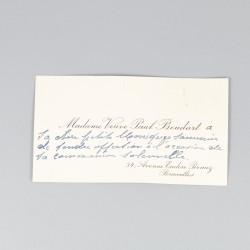 Madame Veuve Paul Boudart a
sa chère petite Monique souvenir
de tendre affection à l'occasion de
sa communion solennelle.
34, Avenue
Bruxelles